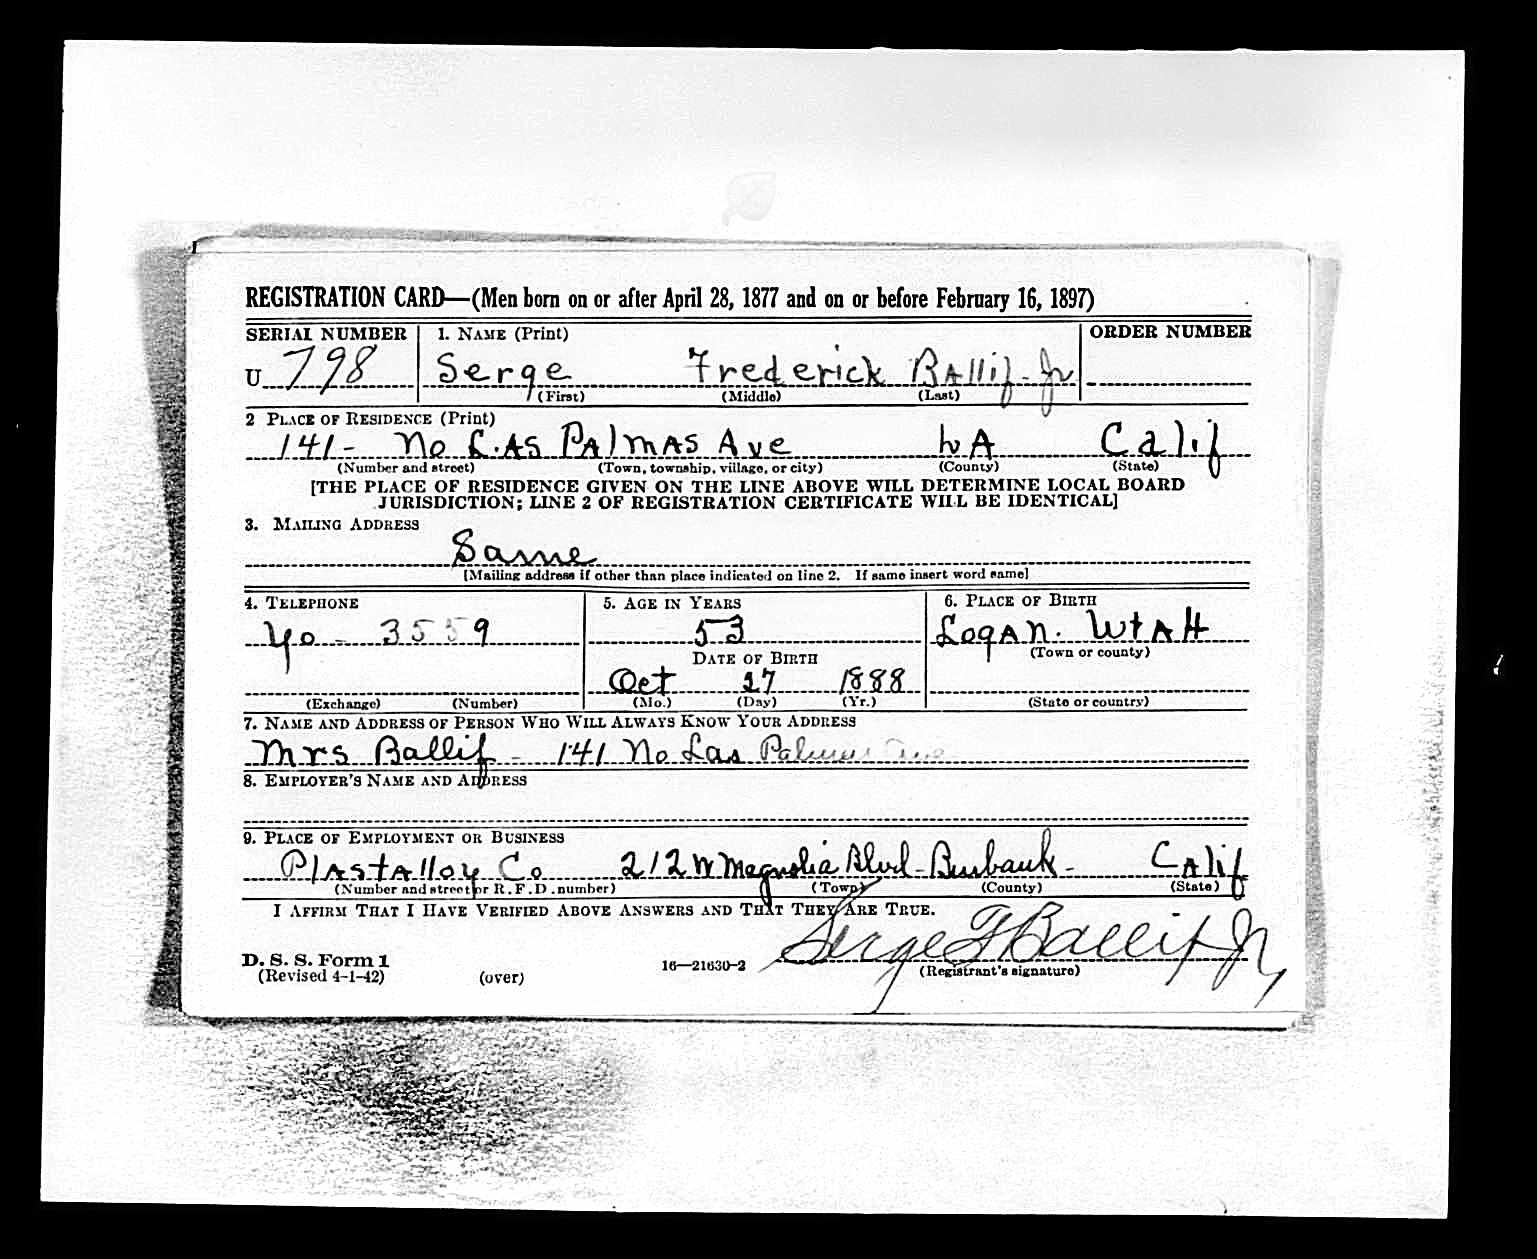 REGISTRATION CARD—(Men born on or after April 28, 1877 and on or before February 16, 1897)
SERIAL NUMBER 1. NAME (Print) ORDER NUMBER
U 798 Serge Frederick Ballif-Jr
(First) (Middle) (Last)
2 PLACE OF RESIDENCE (Print)
141- No Las Palmas Ave LA Calif
(Number and street) (Town, township, village, or city) (County) (State)
[THE PLACE OF RESIDENCE GIVEN ON THE LINE ABOVE WILL DETERMINE LOCAL BOARD
JURISDICTION; LINE 2 OF REGISTRATION CERTIFICATE WILL BE IDENTICAL]
3. MAILING ADDRESS
Same
[Mailing address if other than place indicated on line 2. If same insert word same]
4. TELEPHONE 5. AGE IN YEARS 6. PLACE OF BIRTH
Yo - 3559 53 Logan. Utah
DATE OF BIRTH (Town or county)
Oct 27 1888
(Exchange) (Number) (Mo.) (Day) (Yr.) (State or country)
7. NAME AND ADDRESS OF PERSON WHO WILL ALWAYS KNOW YOUR ADDRESS
Mrs Ballif - 141 No Las Palmas Ave
8. EMPLOYER'S NAME AND ADDRESS
9. PLACE OF EMPLOYMENT OR BUSINESS
Plastalloy Co 212 W Magnolia Blvd-Burbank- Calif
(Number and street or R. F. D. number) (Town) (County) (State)
I AFFIRM THAT I HAVE VERIFIED ABOVE ANSWERS AND THAT THEY ARE TRUE.
Serge F Ballif Jr
D. S. S. Form 1
(Revised 4-1-42) (over) 16—21630-2 (Registrant's signature)